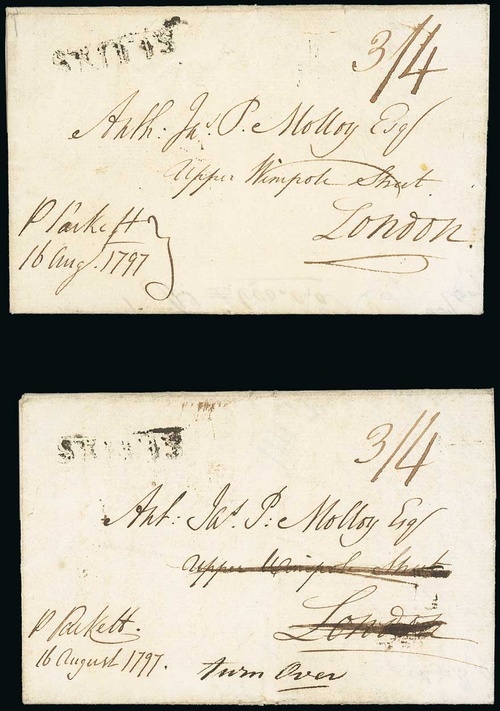 3/4
Anth: Jas. P. Molloy Esqr
Upper Wimpole Street
London.
P Packett
16 Aug. 1797
3/4
Ant: Jas. P: Molloy Esqr
Upper Wimpole Street
London
P Packett.
16 August 1797.
turn Over